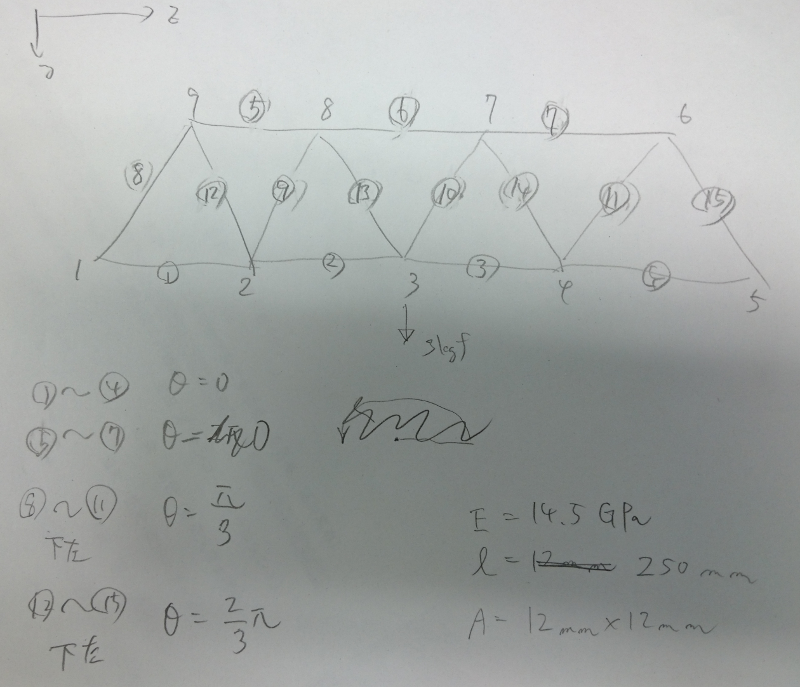 z
9 ⑤ 8 ⑥ 7 ⑦ 6
⑧ ⑫ ⑨ ⑬ ⑩ ⑭ ⑪ ⑮
1 ① 2 ② 3 ③ 4 5
3kgf
①~④ θ=0
⑤~⑦ θ=0
⑧~⑪ θ=π/3
下左
⑫~⑮ θ=2/3π
下左
E=14.5 GPa
l=12mm 250mm
A=12mm×12mm